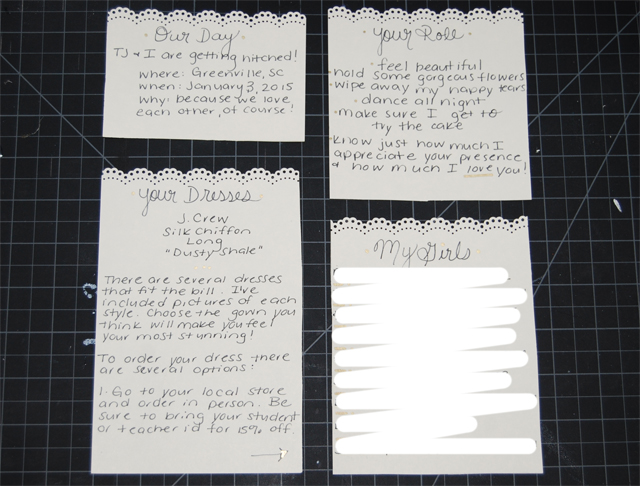 Our Day
TJ & I are getting hitched!
where: Greenville, SC
when: January 3, 2015
why: because we love
each other, of course!
your Role
· feel beautiful
· hold some gorgeous flowers
· wipe away my happy tears
· dance all night
· make sure I get to
try the cake
· know just how much I
appreciate your presence
& how much I love you!
your Dresses
J. Crew
Silk Chiffon
Long
"Dusty Shale"
There are several dresses
that fit the bill. I've
included pictures of each
style. Choose the gown you
think will make you feel
your most stunning!
To order your dress there
are several options:
1. Go to your local store
and order in person. Be
sure to bring your student
or teacher id for 15% off.
My Girls